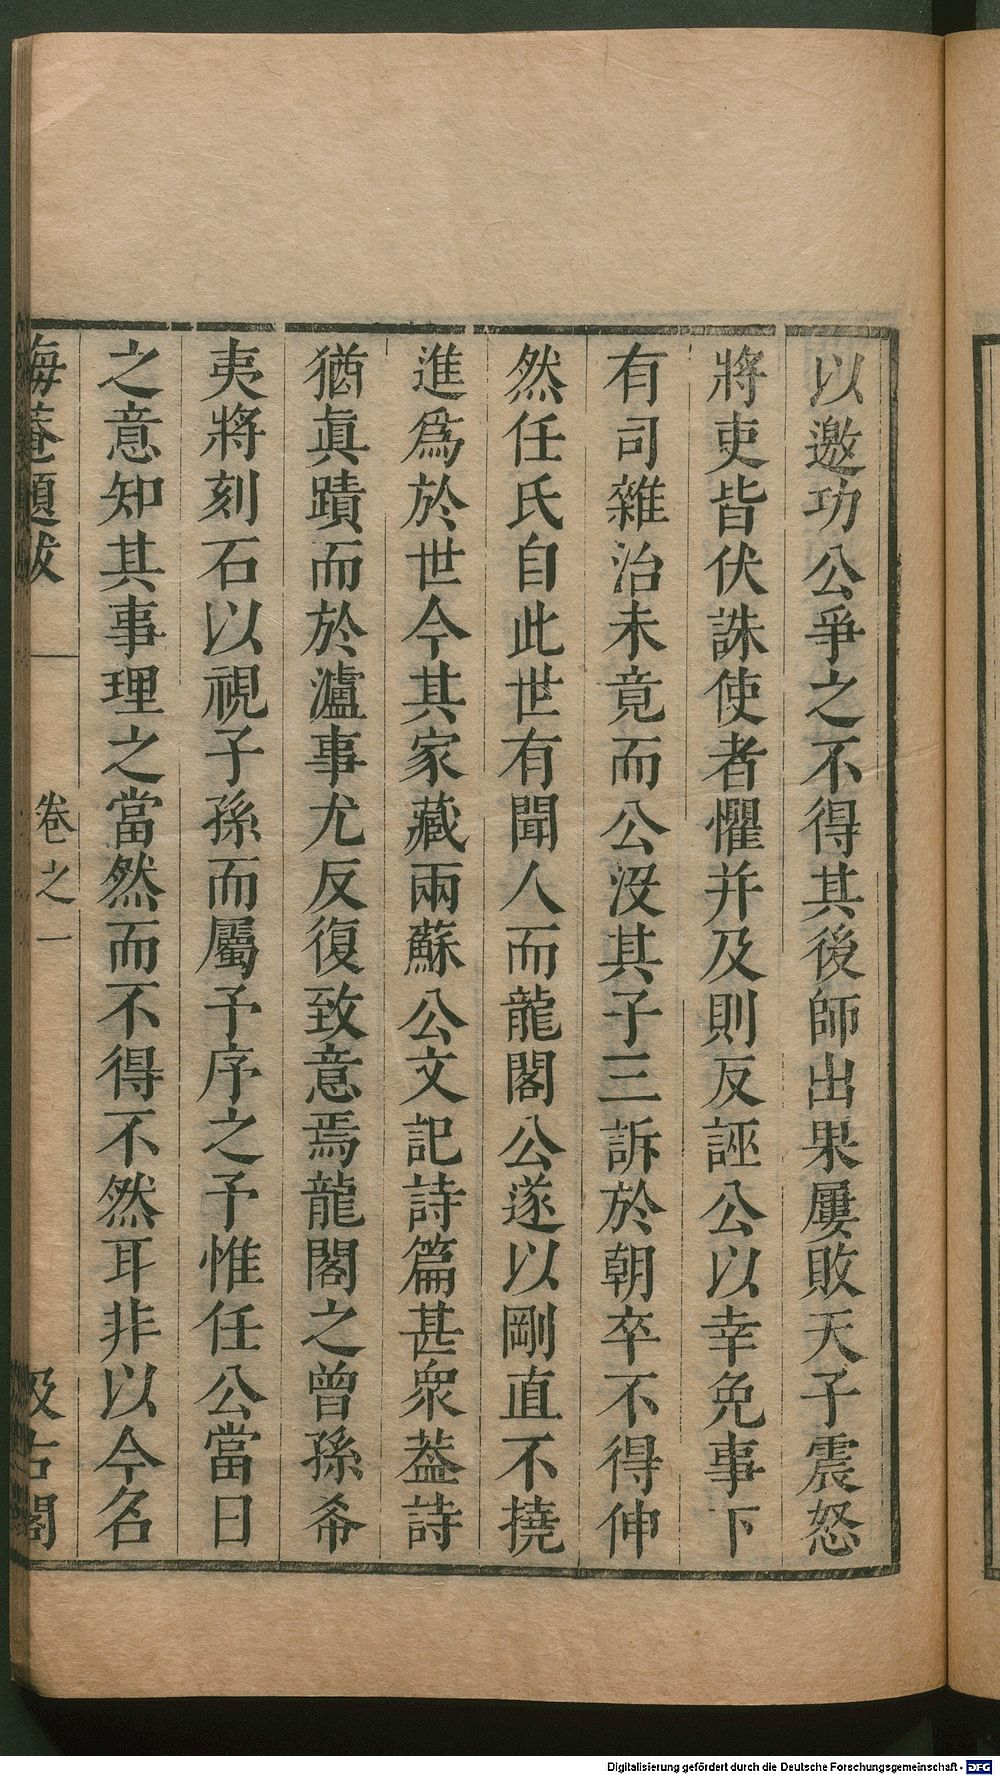 以邀功公爭之不得其後師出果屢敗天子震怒
將吏皆伏誅使者懼并及則反誣公以幸免事下
有司雜治未竟而公沒其子三訴於朝卒不得伸
然任氏自此世有聞人而龍閣公遂以剛直不撓
進爲於世今其家藏兩蘇公文記詩篇甚衆葢詩
猶眞蹟而於瀘事尤反復致意焉龍閣之曾孫希
夷將刻石以視子孫而屬予序之予惟任公當日
之意知其事理之當然而不得不然耳非以今名
晦菴題跋 卷之一 汲古閣
Digitalisierung gefördert durch die Deutsche Forschungsgemeinschaft - DFG